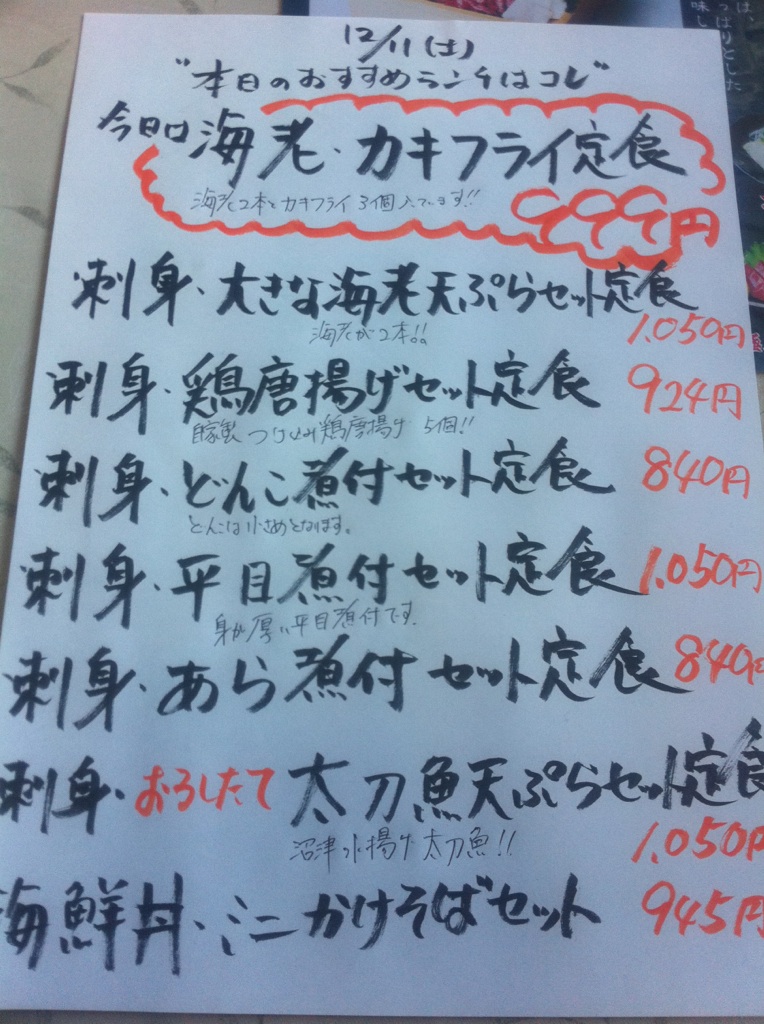 12/11(土)
"本日のおすすめランチはコレ"
今日は海老・カキフライ定食
海老2本とカキフライ3個入ってます!!
999円
刺身・大きな海老天ぷらセット定食
海老が2本!!
1,050円
刺身・鶏唐揚げセット定食 924円
自家製 つけ込み鶏唐揚げ 5個!!
刺身・どんこ煮付セット定食 840円
どんこは小さめとなります。
刺身・平目煮付セット定食 1,050円
身が厚い平目煮付です。
刺身・あら煮付セット定食 840円
刺身・おろしたて太刀魚天ぷらセット定食
沼津水揚げ太刀魚!!
1,050円
海鮮丼・ミニかけそばセット 945円
は、
っぱりとした
味し